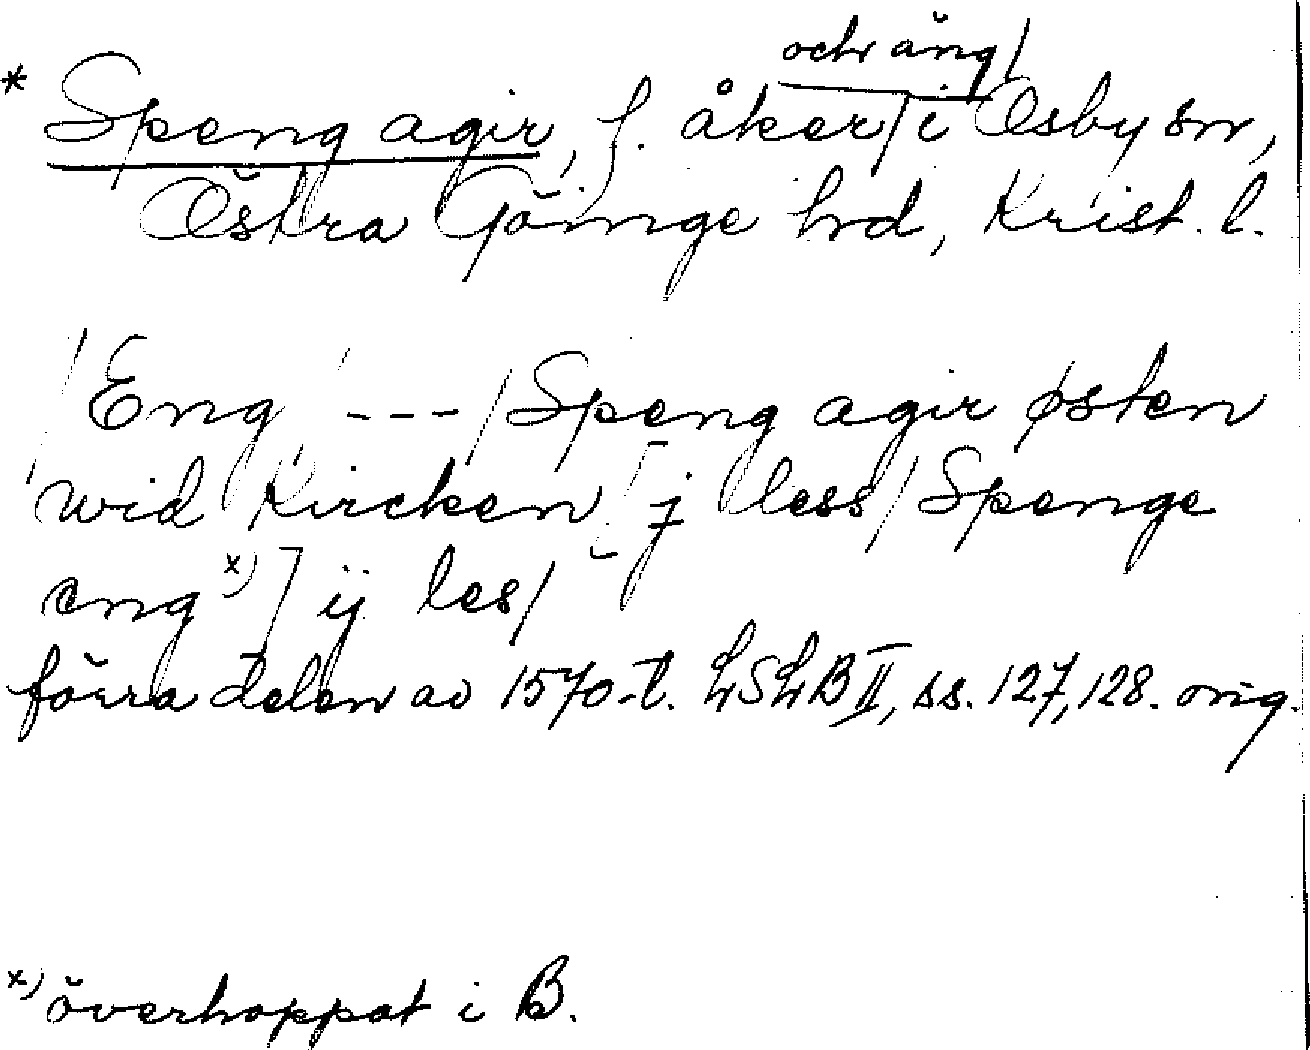 och äng/
* Speng agir, f. åker/ i Osby sn,
Östra Göinge hrd, Krist. l.
/Eng/ ---/Speng agir østen
wid Kircken [j less/Spenge
eng x)] ij les/
förra delen av 1570-t. LSLB II, ss. 127, 128. orig.
x) överhoppat i B.